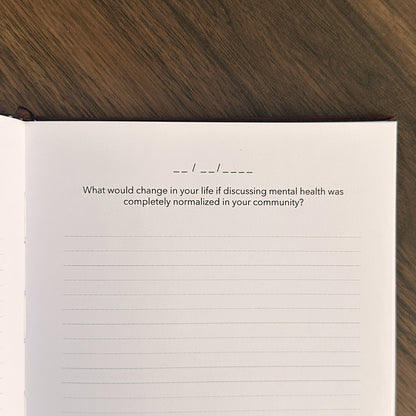 __ / __/____
What would change in your life if discussing mental health was
completely normalized in your community?